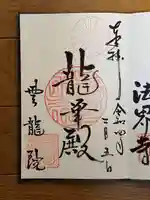 奉拝
令和四年
二月五日
龍華殿
雲龍院
法界寺